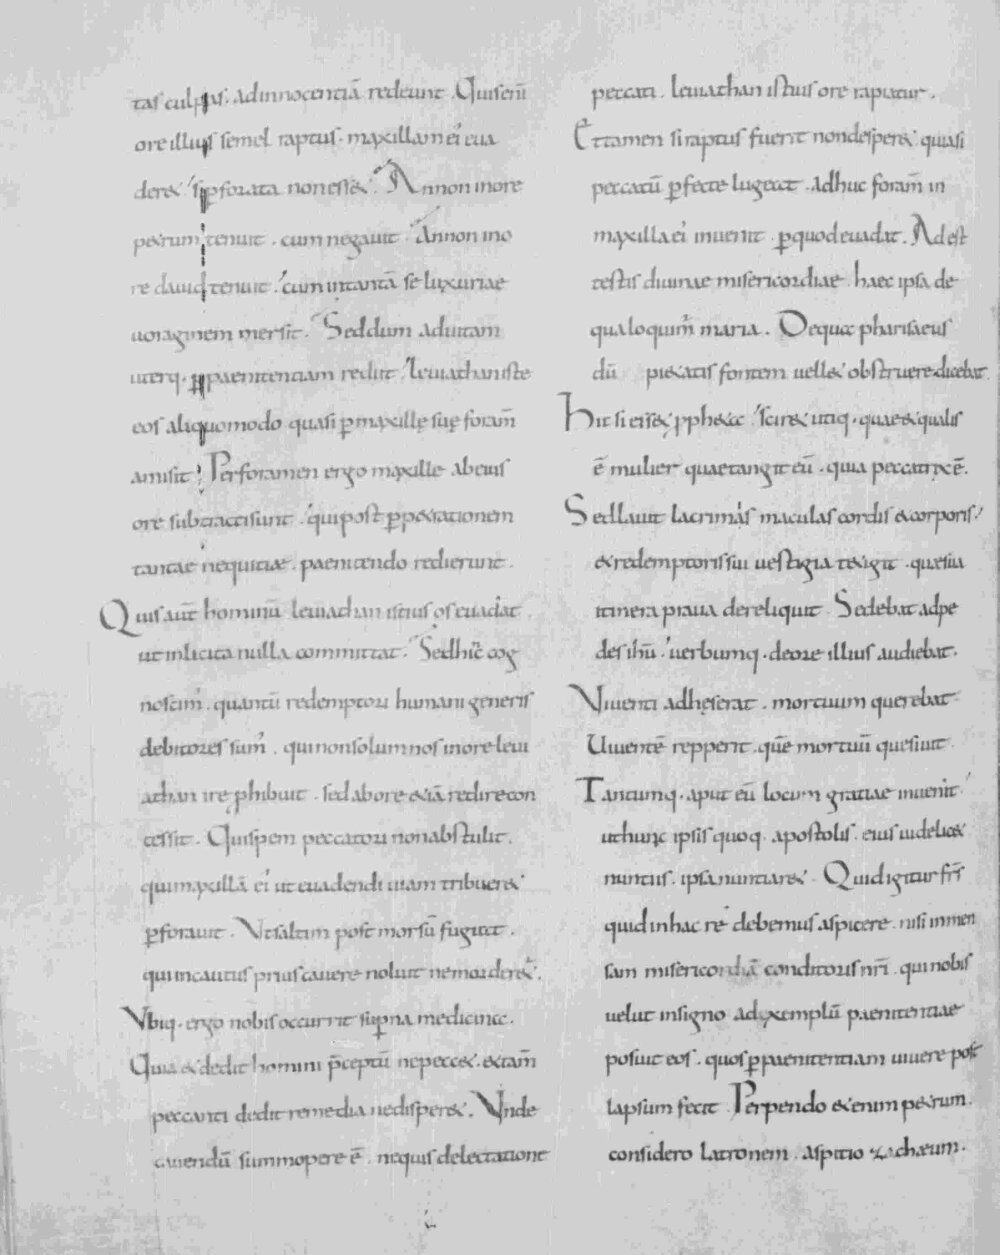 tas culpas. ad innocentiā redeunt. Quis enī
ore illius semel raptus. maxillam ei' eua
deret si pforata non esset. An non in ore
petrum tenuit. cum negauit. An non in o
re dauid tenuit. cum in tantā se luxuriae
uoraginem mersit. Sed dum ad uitam
uterq. p paenitentiam rediit. leuiathan iste
eos aliquomodo quasi p maxillę suę foram̄
amisit; Per foramen ergo maxille ab eius
ore subtracti sunt. qui post p petrationem
tantae nequitiae. paenitendo redierunt.
Quis aut̄ hominū leuiathan istius os euadat.
ut inlicita nulla committat. Sed hīc cog
noscim'. quantū redemptori humani generis
debitores sum'. qui non solum nos in ore leui
athan ire phibuit. sed ab ore etiā redire con
cessit. Qui spem peccatori non abstulit.
qui maxillā ei' ut euadendi uiam tribueret
pforauit. Vt saltim post morsū fugiat.
qui incautus prius cauere noluit ne morderet.
Vbiq. ergo nobis occurrit supna medicina.
Quia et dedit homini p̄ceptū ne peccet. et tam̄
peccanti dedit remedia ne disperet. Vnde
cauendū summopere ē. ne quis delectatione
peccati. leuiathan istius ore rapiatur.
Et tamen si raptus fuerit non desperet quasi
peccatū pfecte lugeat. adhuc foram̄ in
maxilla ei' inuenit. p quod euadat. Adest
testis diuinae misericordiae. haec ipsa de
qua loquim' maria. De qua phariseus
dū pietatis fontem uellet obstruere. dicebat.
Hic si esset ppheta. sciret utiq. quae et qualis
ē mulier quae tangit eū. quia peccatrix ē.
Sed lauit lacrimis maculas cordis et corporis.
et redemptoris sui uestigia tetigit. quae sua
itinera praua dereliquit. Sedebat ad pe
des ihū. uerbumq. de ore illius audiebat.
Viuenti adhęserat. mortuum querebat.
Uiuentē repperit. quē mortuū quesiuit.
Tantumq. aput eū locum gratiae inuenit
ut hunc ipsis quoq. apostolis. eius uidelicet
nuntiis. ipsa nuntiaret. Quid igitur fr̄s
quid in hac re debemus aspicere. nisi inmen
sam misericordiā conditoris nr̄i. qui nobis
uelut in signo ad exemplū paenitentiae
posuit eos. quos p paenitentiam uiuere post
lapsum fecit. Perpendo etenim petrum.
considero latronem. aspitio zachæum.